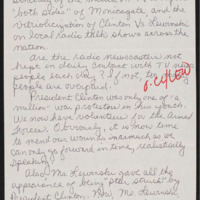 "both sides" of Monicagate and the
introduction of Clinton Vs Lewinski
on local radio talk shows across the
nation.
Are the radio newscasters not
kept in daily contact with TV news
people each day? If not,
people are overpaid.
President Clinton was only one of "a
million" war protestors in his youth.
We now have volunteers for the armed
forces. Obviously, it is now time
to mend our wounds inasmuch as we
can only go forward in time, realistically
speaking.
Also, Ms. Lewinski gave all the
appearance of being
President Clinton. Ms. Lewinski